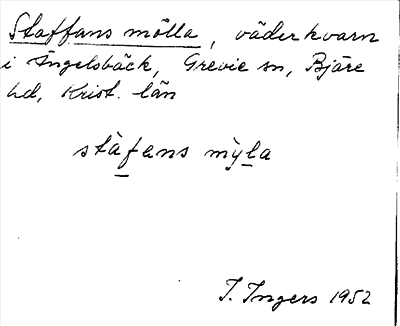 Staffans mölla, väderkvarn
i Ängelsbäck, Grevie sn, Bjäre
hd, Krist. län
stàfans mỳla
I. Ingers 1952